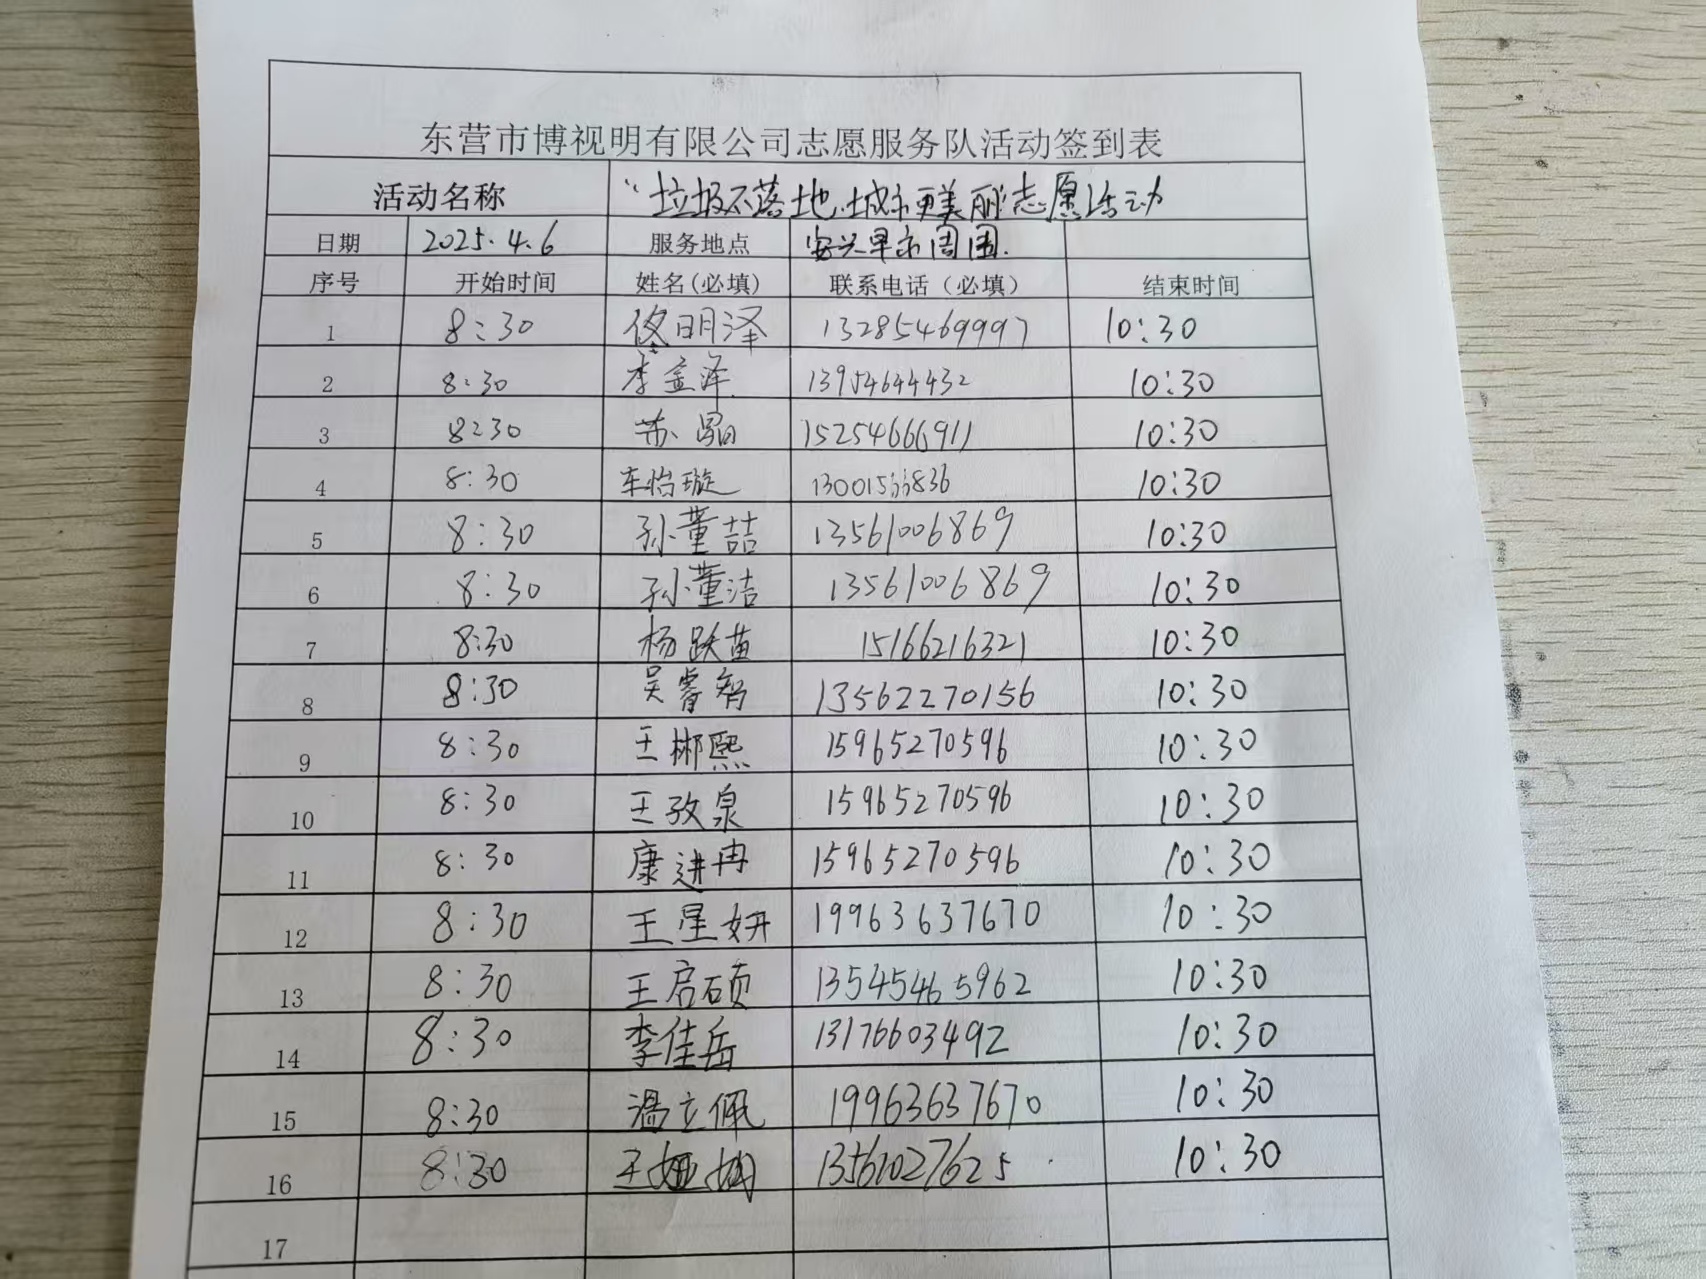 东营市博视明有限公司志愿服务队活动签到表
活动名称 “垃圾不落地,城市更美丽”志愿活动
日期 2025.4.6 服务地点 安兴早市周围.
序号 开始时间 姓名(必填) 联系电话(必填) 结束时间
1 8:30 佟明泽 13285469997 10:30
2 8:30 李孟泽 13954644432 10:30
3 8:30 苏晶 15254666911 10:30
4 8:30 车怡璇 13001566836 10:30
5 8:30 孙董喆 13561006869 10:30
6 8:30 孙董洁 13561006869 10:30
7 8:30 杨跃苗 15166216321 10:30
8 8:30 吴睿智 13562270156 10:30
9 8:30 王郴熙 15965270596 10:30
10 8:30 王孜泉 15965270596 10:30
11 8:30 康进冉 15965270596 10:30
12 8:30 王星妍 19963637670 10:30
13 8:30 王启硕 13545465962 10:30
14 8:30 李佳岳 13176603492 10:30
15 8:30 温立佩 19963637670 10:30
16 8:30 王 13561027625 10:30
17